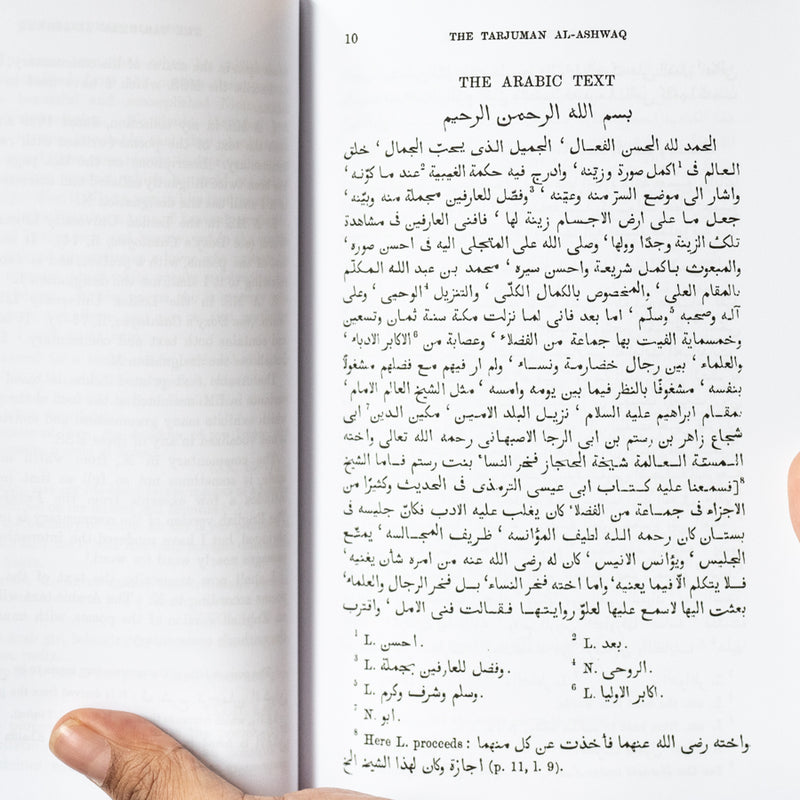 10
THE TARJUMAN AL-ASHWAQ
THE ARABIC TEXT
بسم الله الرحمن الرحيم
الحمد لله الحسن الفعال ، الجميل الذى يحبّ الجمال ، خلق
العالم فى ¹اكمل صورة وزيّنه ، وادرج فيه حكمة الغيبية ²عند ما كوّنه ،
واشار الى موضع السرّ منه وعيّنه ، ³وفصّل للعارفين مجملة منه وبيّنه ،
جعل ما على ارض الاجسام زينة لها ، فافنى العارفين فى مشاهدة
تلك الزينة وجدًا وولها ، وصلى الله على المتجلى اليه فى احسن صوره ،
والمبعوث باكمل شريعة واحسن سيره ، محمد بن عبد الله المكلّم
بالمقام العلى ، والمخصوص بالكمال الكلّى ، والتنزيل ⁴الوحيى ، وعلى
آله وصحبه ⁵وسلّم ، اما بعد فانى لما نزلت مكة سنة ثمان وتسعين
وخمسماية الفيت بها جماعة من الفضلاء ، وعصابة من ⁶الاكابر الادباء ،
والعلماء ، بين رجال خضارمة ونساء ، ولم ار فيهم مع فضلهم مشغولًا
بنفسه ، مشغوفًا بالنظر فيما بين يومه وامسه ، مثل الشيخ العالم الامام ،
بمقام ابراهيم عليه السلام ، نزيل البلد الامين ، مكين الدين ⁷ابى
شجاع زاهر بن رستم بن ابى الرجا الاصبهانى رحمه الله تعالى واخته
المسنّة العالمة شيخة الحجاز فخر النسا، بنت رستم فاما الشيخ
فسمعنا عليه كتاب ابى عيسى الترمذى فى الحديث وكثيرًا من]⁸
الاجزاء فى جماعة من الفضلا، كان يغلب عليه الادب فكانّ جليسه فى
بستان كان رحمه الله لطيف المؤانسه ، ظريف المجالسه ، يمتّع
الجليس ، ويؤانس الانيس ، كان له رضى الله عنه من امره شأن يغنيه ،
فلا يتكلم الّا فيما يعنيه، واما اخته فخر النساء، بل فخر الرجال والعلماء،
بعثت اليها لاسمع عليها لعلوّ روايتها ، فقالت فنى الامل ، واقترب
¹ L. احسن.
² L. بعد.
³ L. وفضل للعارفين بجملة.
⁴ N. الروحى.
⁵ L. وسلم وشرف وكرم.
⁶ L. اكابر الاوليا.
⁷ N. ابو.
⁸ Here L. proceeds: واخته رضى الله عنهما فأخذت عن كل منهما
اجازة وكان لهذا الشيخ الخ (p. 11, l. 9).